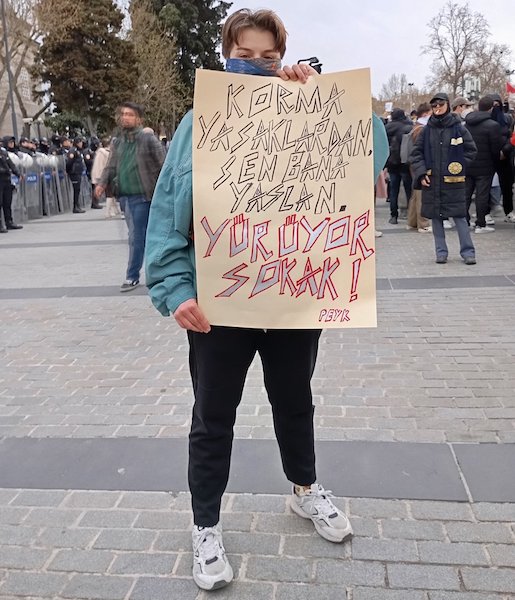 KORMA
YASAKLARDAN,
SEN BANA
YASLAN.
YÜRÜYOR
SOKAK!
PEYK